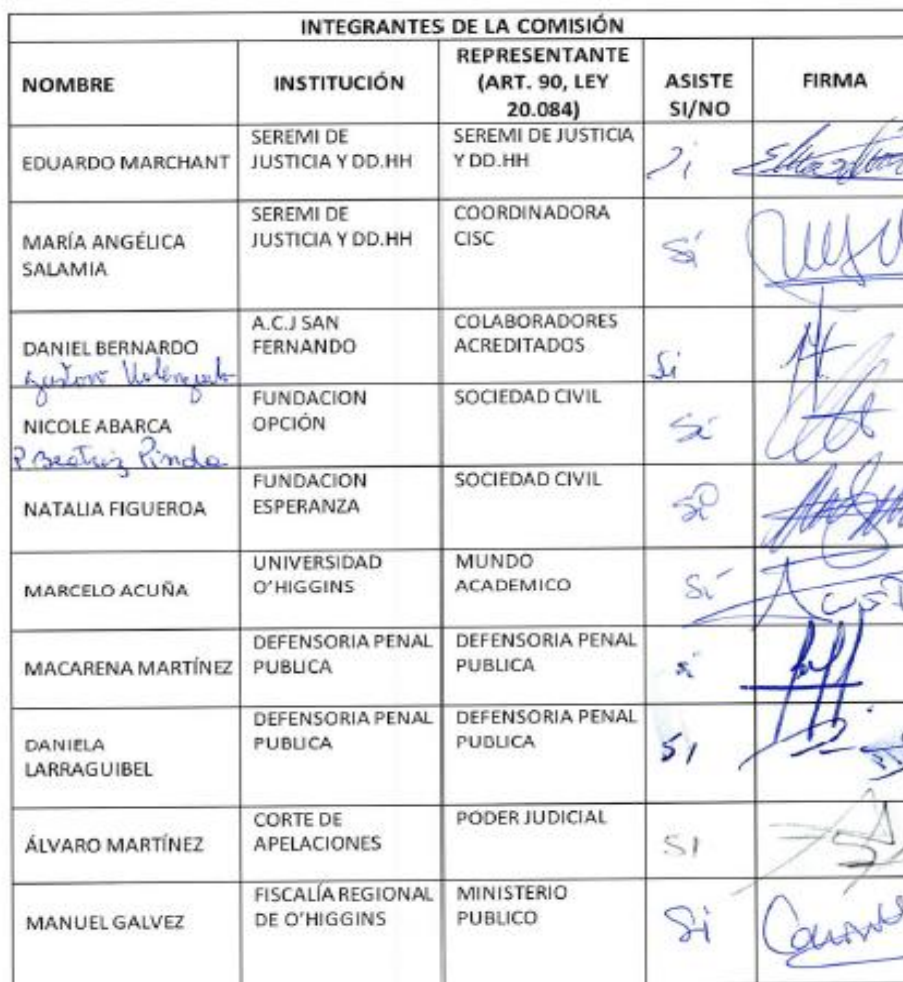 INTEGRANTES DE LA COMISIÓN
NOMBRE
INSTITUCIÓN
REPRESENTANTE
(ART. 90, LEY
20.084)
ASISTE
SI/NO
FIRMA
EDUARDO MARCHANT
SEREMI DE
JUSTICIA Y DD.HH
SEREMI DE JUSTICIA
Y DD.HH
Si
MARÍA ANGÉLICA
SALAMIA
SEREMI DE
JUSTICIA Y DD.HH
COORDINADORA
CISC
Sí
DANIEL BERNARDO
Gustavo Valenzuela
A.C.J SAN
FERNANDO
COLABORADORES
ACREDITADOS
Si
NICOLE ABARCA
P. Beatriz Pinda
FUNDACION
OPCIÓN
SOCIEDAD CIVIL
Sí
NATALIA FIGUEROA
FUNDACION
ESPERANZA
SOCIEDAD CIVIL
Si
MARCELO ACUÑA
UNIVERSIDAD
O'HIGGINS
MUNDO
ACADEMICO
Sí
MACARENA MARTÍNEZ
DEFENSORIA PENAL
PUBLICA
DEFENSORIA PENAL
PUBLICA
si
DANIELA
LARRAGUIBEL
DEFENSORIA PENAL
PUBLICA
DEFENSORIA PENAL
PUBLICA
SI
ÁLVARO MARTÍNEZ
CORTE DE
APELACIONES
PODER JUDICIAL
SI
MANUEL GALVEZ
FISCALÍA REGIONAL
DE O'HIGGINS
MINISTERIO
PUBLICO
Si